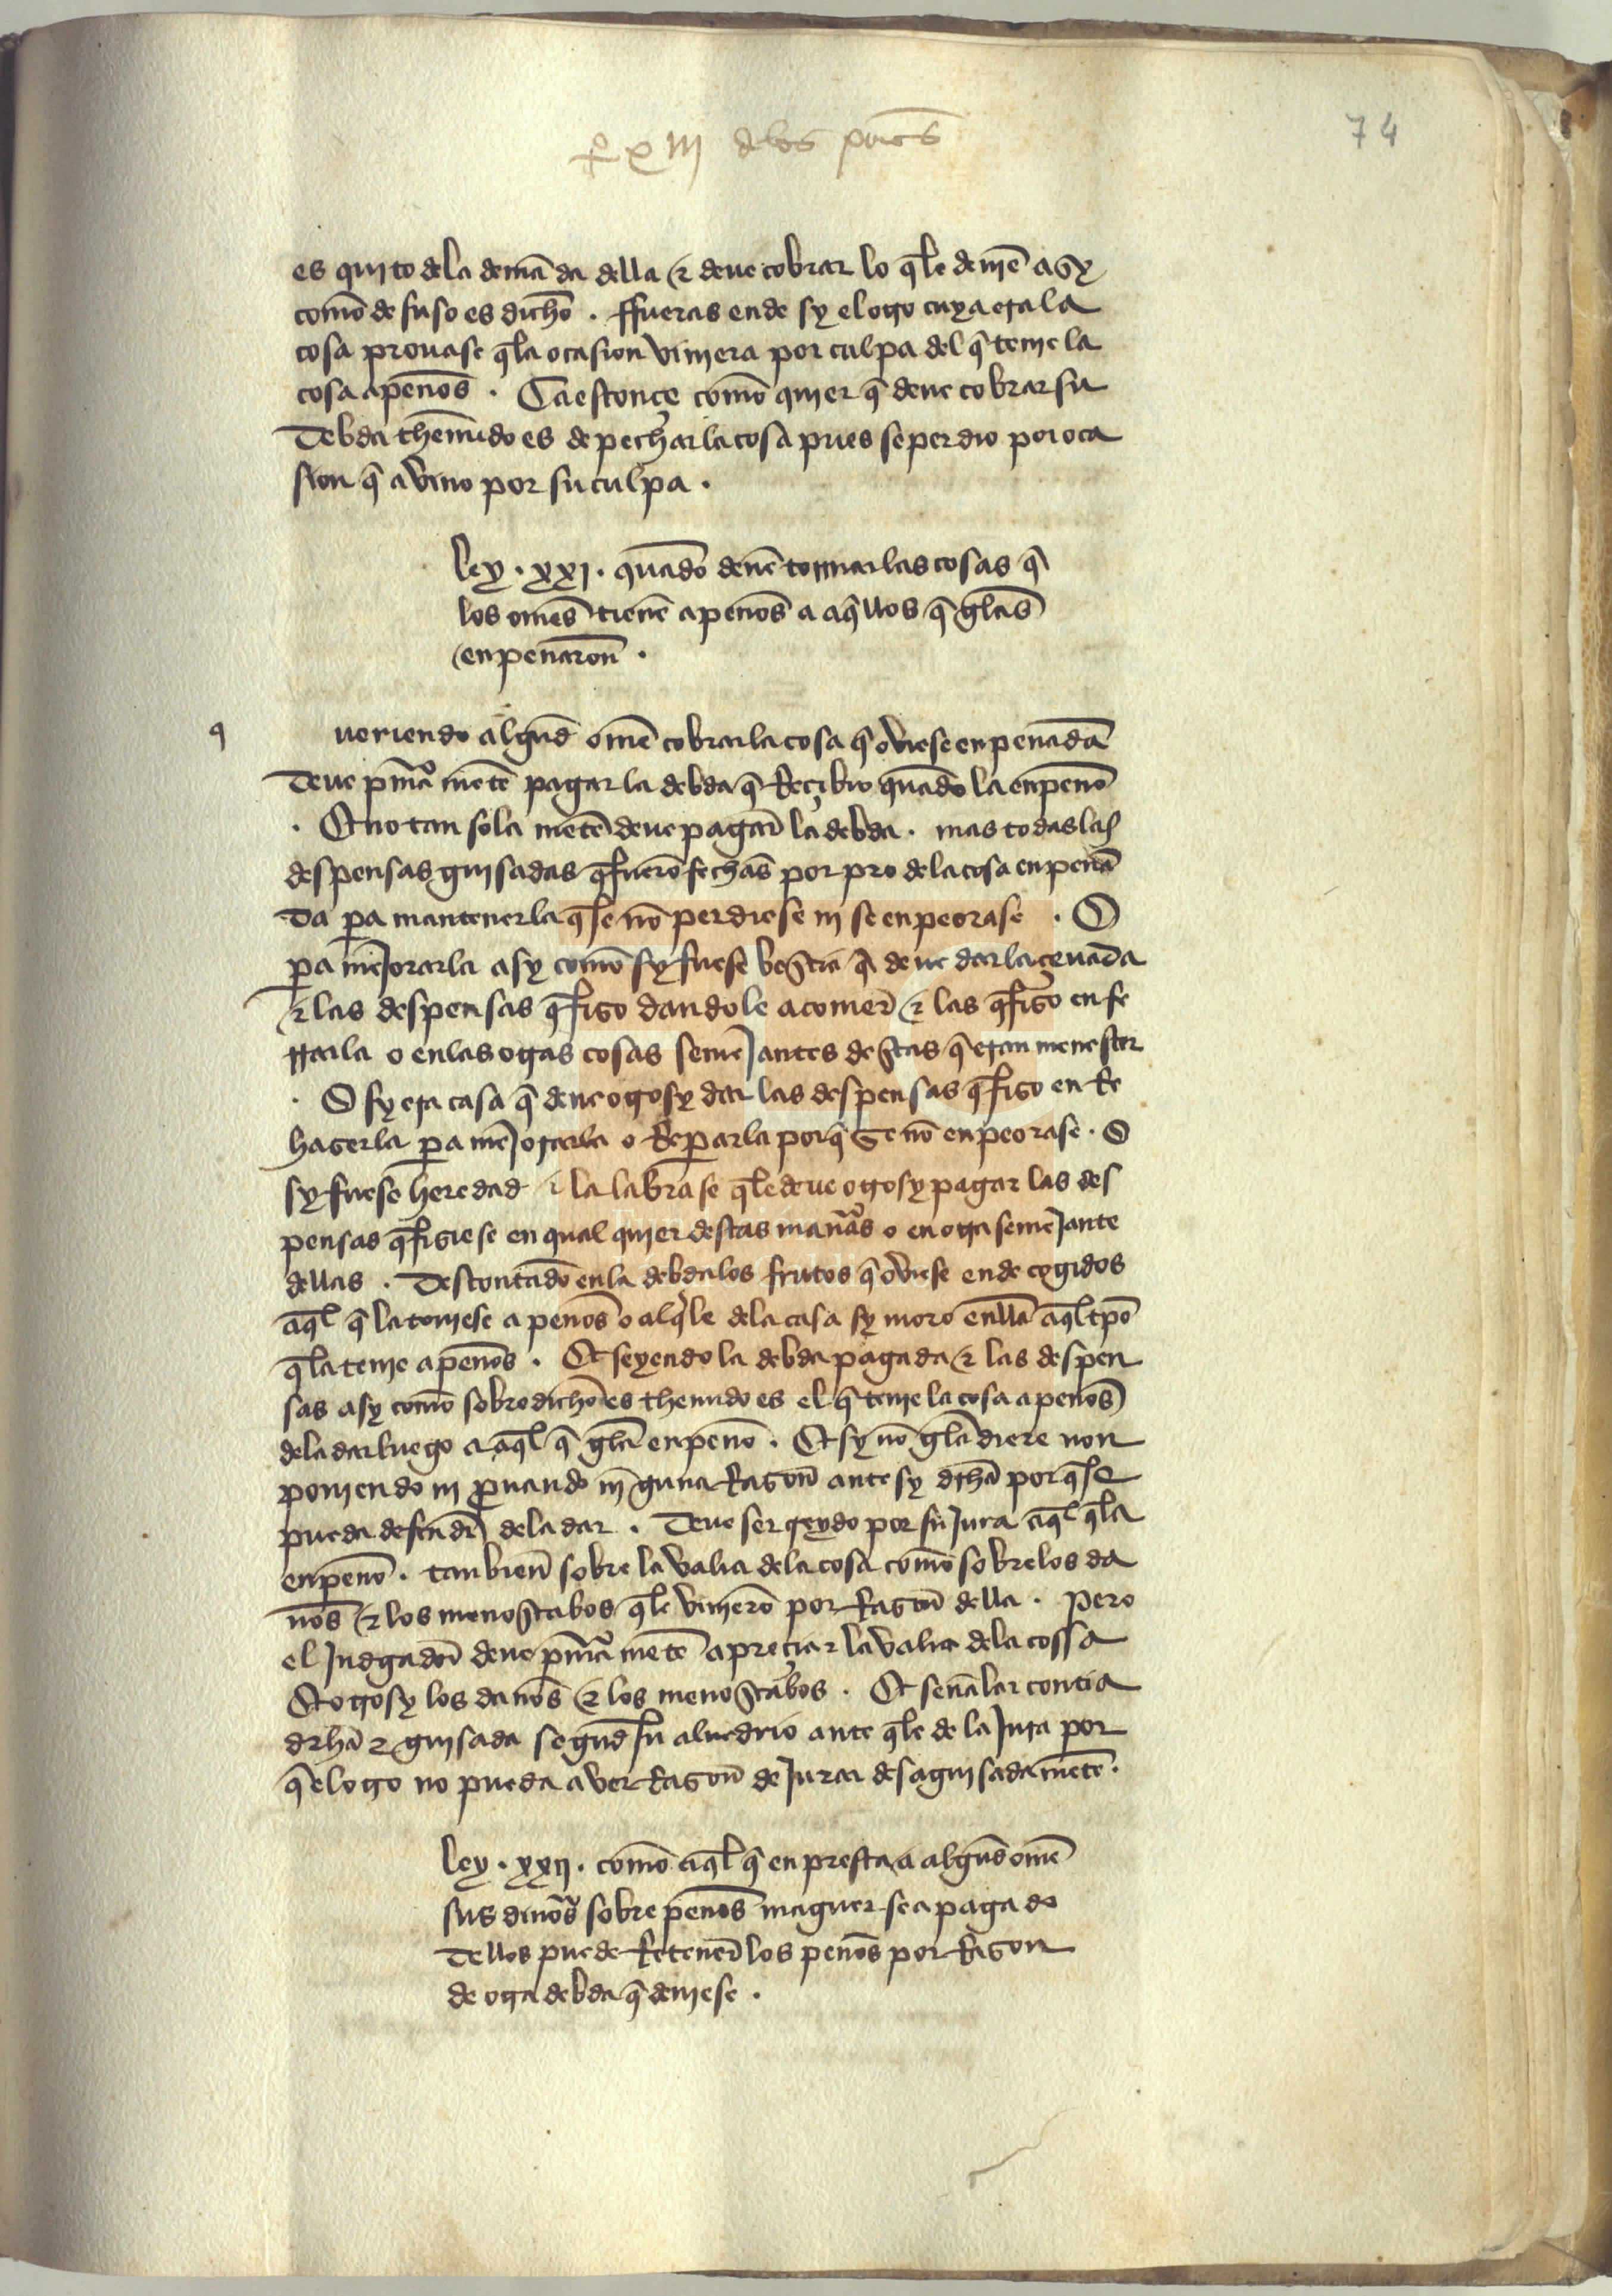 tº xiii delos peños
74
es quito dela demāda della & deue cobrar lo q̄le deuiē asy
comō de suso es dichō . ffueras ende sy el otro cuya era la
cosa prouase q̄la ocasion viniera por culpa del q̄ tenie la
cosa apenōs . Ca estonçe comō quier q̄ deue cobrar su
debda thenudo es de pechar la cosa pues se perdio por oca
sion q̄ avino por su culpa .
ley . xxi . quādo deuē tornar las cosas q̄
los omēs tienē a penōs a aq̄llos q̄ gelas
enpenarōn .
q
ueriendo algūd omē cobrar la cosa q̄ oviese enpenadā
deue pmāº mētē pagar la debda q̄ Reçibio quādo la enpenō
. Et no tan sola mētē deue pagar la debda . mas todas las
despensas guisadas q̄ fuerō fechās por pro dela cosa enpenā
da pa mantenerla q̄se nō perdiese ni se enpeorase . O
pa mejorarla asy comō sy fuese bestia q̄ deue dar la çeuada
& las despensas q̄ fizo dandole a comer & las q̄ fizo en fe
rrarla o en las otras cosas semejantes destas q̄ eran menester
. O sy era casa q̄ deue otrosy dar las despensas q̄ fizo en Re
hazerla pa mejorarla o Repararla porq̄ se nō enpeorase . O
sy fuese heredad i la labrase q̄le deue otrosy pagar las des
pensas q̄ fiziese en qual quier destas manāˢ o en otra semejante
dellas . Descontādo en la debda los frutos q̄ oviese ende cogidos
aq̄l q̄ la touiese a penōs o alq̄le dela casa sy moro enlla aq̄l tpō
q̄ la tenie a penōs . Et seyendo la debda pagada & las despen
sas asy comō sobre dichō es thenudo es el q̄ tenie la cosa a penōs
dela dar luego a aq̄l q̄ gela enpenō . Et sy nō gela diere non
poniendo ni prouando nīguna Razōn ante sy drhā por q̄ se
pueda defender dela dar . Deue ser creydo por su Jura aq̄l q̄la
enpenō . tan bien sobre la valia dela cosa comō sobre los da
nōs & los menoscabos q̄le vinierō por Razōn della . pero
el Judgador deue pmāº mētē apreçiar la valia dela cossa
Et otrosy los danōs & los menoscabos . Et senālar contia
drhā & guisada segūd su aluedrio ante q̄le de la Jura por
q̄ el otro no pueda aver Razōn de Jurar desaguisada mētē .
ley . xxii . comō aq̄l q̄ enpresta a algūd omē
sus dinōˢ sobre penōs maguer sea pagado
dellos puede Retener los penōs por Razon
de otra debda q̄ deuiese .